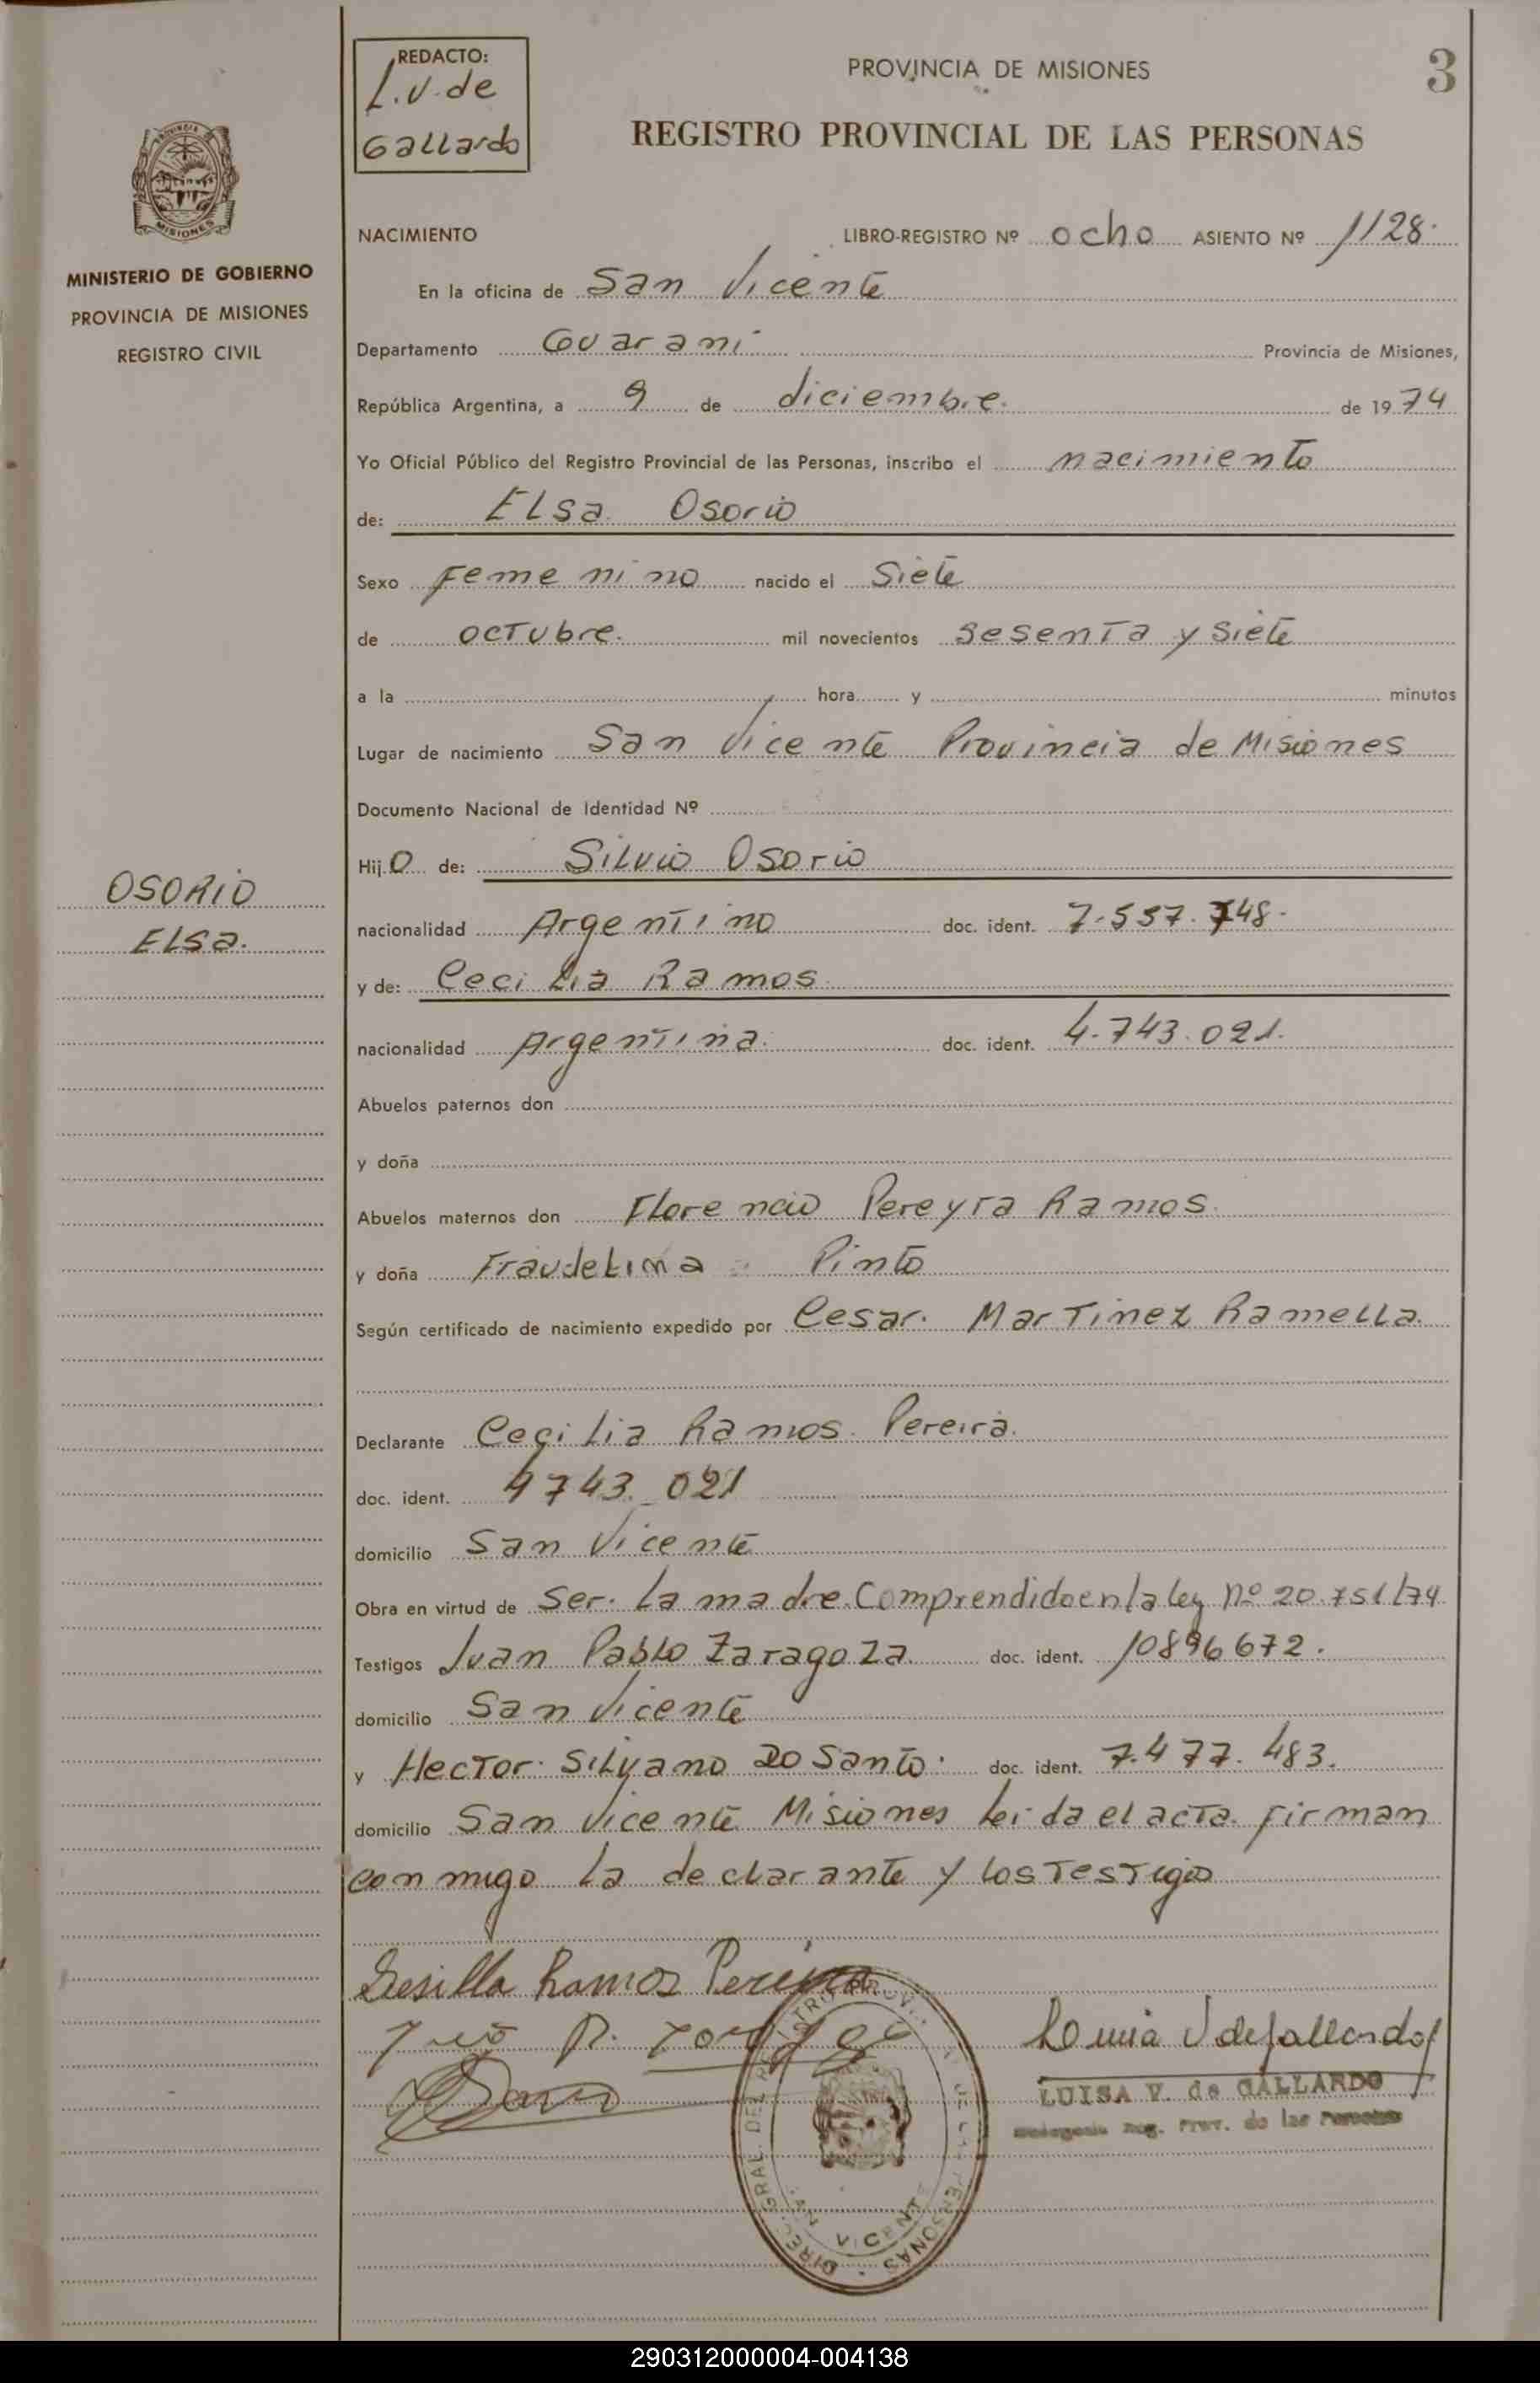 REDACTO:
L.V. de
Gallardo
PROVINCIA DE MISIONES
3
REGISTRO PROVINCIAL DE LAS PERSONAS
MISIONES
MINISTERIO DE GOBIERNO
PROVINCIA DE MISIONES
REGISTRO CIVIL
NACIMIENTO LIBRO-REGISTRO Nº ocho ASIENTO Nº 1128.
En la oficina de San Vicente
Departamento Guarani Provincia de Misiones,
República Argentina, a 9 de diciembre. de 1974
Yo Oficial Público del Registro Provincial de las Personas, inscribo el nacimiento
de: Elsa Osorio
Sexo Femenino nacido el Siete
de octubre. mil novecientos sesenta y siete
a la hora y minutos
Lugar de nacimiento San Vicente Provincia de Misiones
Documento Nacional de Identidad Nº
Hijo de: Silvio Osorio
OSORIO
Elsa.
nacionalidad Argentino doc. ident. 7.557.748.
y de: Cecilia Ramos
nacionalidad Argentina. doc. ident. 4.743.021.
Abuelos paternos don
y doña
Abuelos maternos don Florencio Pereyra Ramos.
y doña Fraudelina Pinto
Según certificado de nacimiento expedido por Cesar. Martinez Ramella.
Declarante Cecilia Ramos Pereira.
doc. ident. 4743.021
domicilio San Vicente
Obra en virtud de ser. la madre. Comprendido en la ley Nº 20.751/74
Testigos Juan Pablo Zaragoza. doc. ident. 10896672.
domicilio San Vicente
y Hector Silvano Do Santo. doc. ident. 7.477.483.
domicilio San Vicente Misiones leida el acta. firman
conmigo la declarante y los testigos
Sesilla Ramos Pereira
LUISA V. de GALLARDO
Reg. Prov. de las Personas
DIREC. GRAL. DEL REGISTRO PROV. DE LAS PERSONAS
SAN VICENTE
290312000004-004138